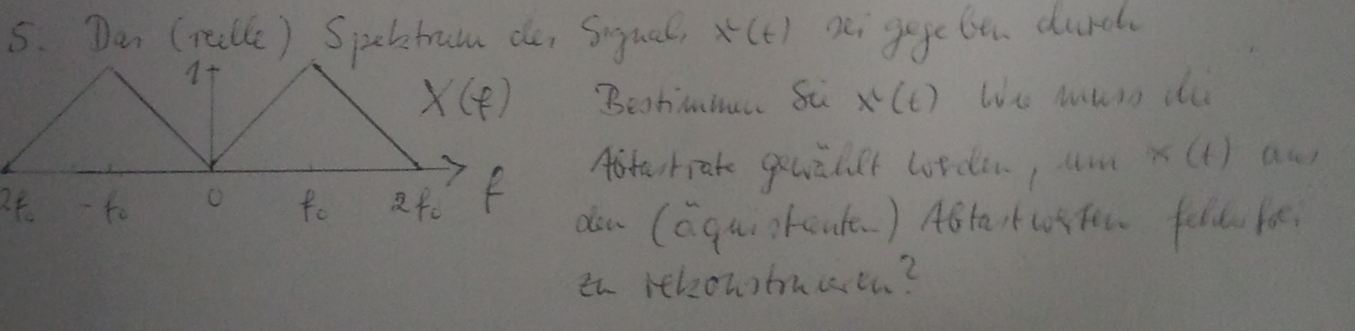 5. Das (reelle) Spektrum des Signals x(t) sei gegeben durch
1
X(f) Bestimmen Sie x(t) Wie muss die
Abtastrate gewählt werden, um x(t) aus
2f₀ -f₀ 0 f₀ 2f₀ f
den (äquistanten) Abtastwerten fehlerfrei
zu rekonstruieren?